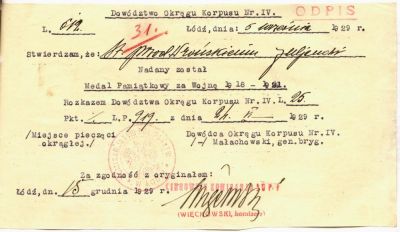 Dowództwo Okręgu Korpusu Nr.IV.
ODPIS
L. 612.
31.
Łódź,dnia: 5 września 1929 r.
Stwierdzam,że:
Nadany został
Medal Pamiątkowy za Wojnę 1918 - 1921.
Rozkazem Dowództwa Okręgu Korpusu Nr.IV.L. 25.
Pkt. L.P. 909. z dnia 24. II 1929 r.
/Miejsce pieczęci
okrągłej./
Dowódca Okręgu Korpusu Nr.IV.
/-/ Małachowski, gen.bryg.
Za zgodność z oryginałem:
Łódź,dnia 15 grudnia 1929 r.
(WIĘCKOWSKI, komisarz)